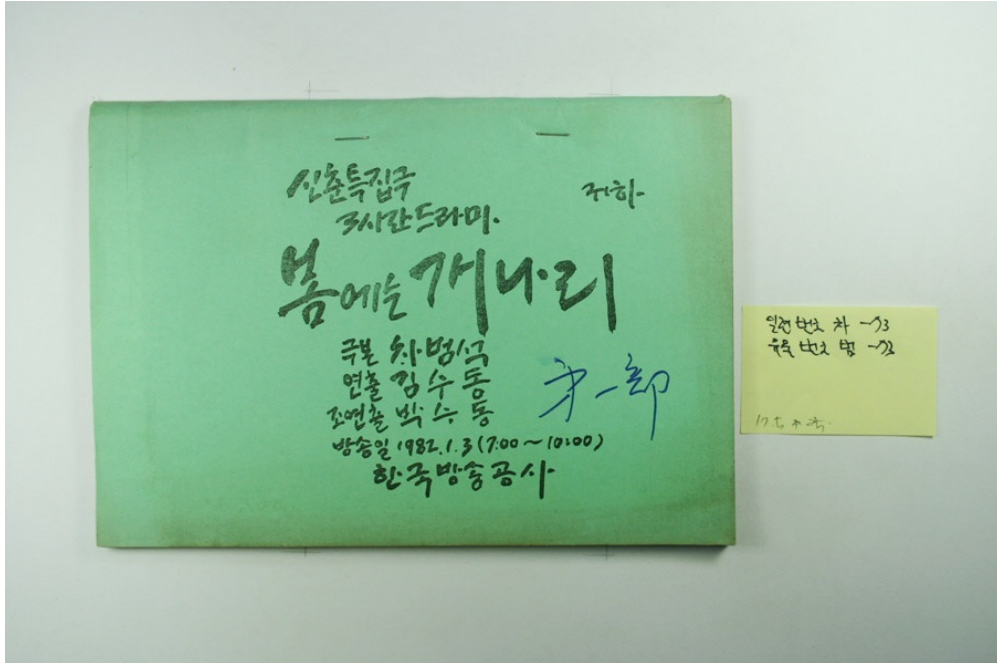 신춘특집극
3시간드라마.
귀하
봄에는 개나리
극본 차범석
연출 김수동
조연출 박수동
第一部
방송일 1982.1.3 (7:00~10:00)
한국방송공사
번호 차 -73
번호 범 -73